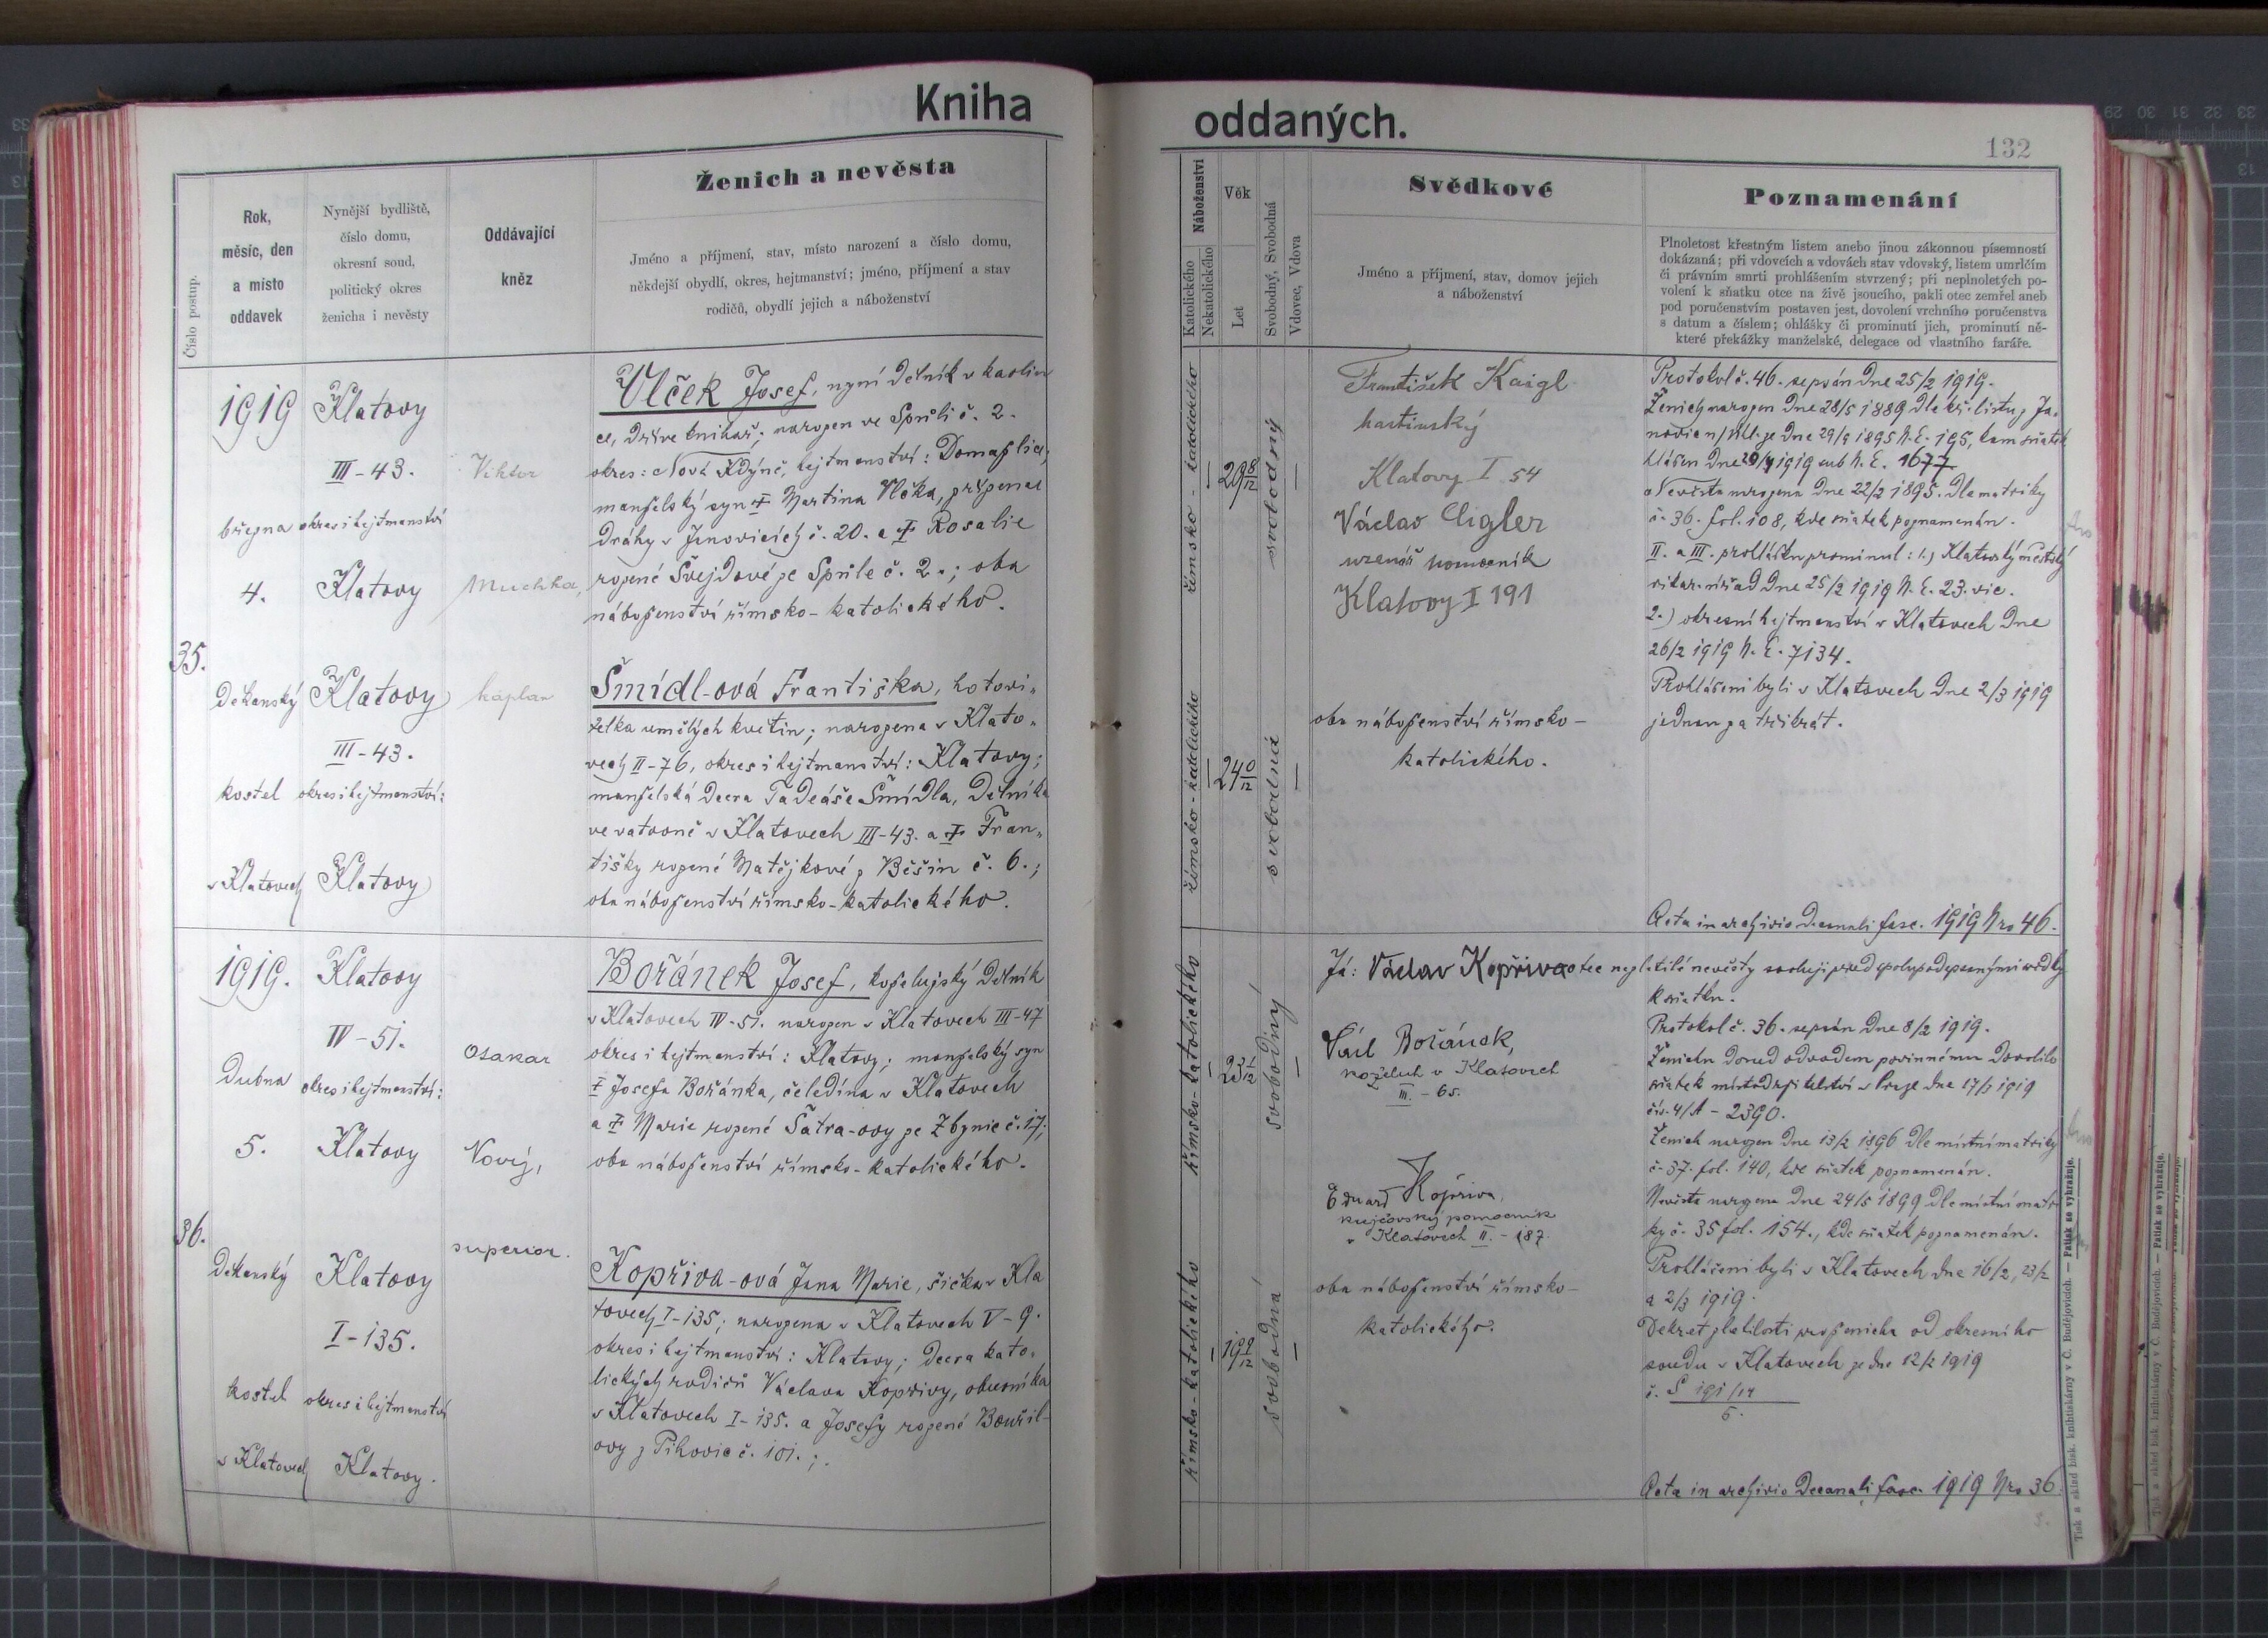 Kniha
oddaných.
132
Číslo postup.
Rok,
měsíc, den
a místo
oddavek
Nynější bydliště,
číslo domu,
okresní soud,
politický okres
ženicha i nevěsty
Oddávající
kněz
Ženich a nevěsta
Jméno a příjmení, stav, místo narození a číslo domu,
někdejší obydlí, okres, hejtmanství; jméno, příjmení a stav
rodičů, obydlí jejich a náboženství
Náboženství
Katolického
Nekatolického
Věk
Let
Svobodný, Svobodná
Vdovec, Vdova
Svědkové
Jméno a příjmení, stav, domov jejich
a náboženství
Poznamenání
Plnoletost křestným listem anebo jinou zákonnou písemností
dokázaná; při vdovcích a vdovách stav vdovský, listem umrlčím
či právním smrti prohlášením stvrzený; při neplnoletých po-
volení k sňatku otce na živě jsoucího, pakli otec zemřel aneb
pod poručenstvím postaven jest, dovolení vrchního poručenstva
s datum a číslem; ohlášky či prominutí jich, prominutí ně-
které překážky manželské, delegace od vlastního faráře.
35.
1919
března
4.
Děkanský
kostel
v Klatovech
Klatovy
III-43.
okres i hejtmanství
Klatovy
Klatovy
III-43.
okres i hejtmanství:
Klatovy
Viktor
Muchka,
kaplan
Vlček Josef, nyní dělník v kaolin
ce, dříve knihař; narozen ve Spůli č. 2.
okres: Nová Kdýně, hejtmanství: Domažlice;
manželský syn † Martina Vlčka, zřízence
dráhy v Janovicích č. 20. a † Rosalie
rozené Švejdové ze Spůle č. 2.; oba
náboženství římsko-katolického.
Šmídl-ová Františka, hotovi„
telka umělých květin; narozena v Klato„
vech II-76, okres i hejtmanství: Klatovy;
manželská dcera Tadeáše Šmídla, dělníka
ve vatovně v Klatovech III-43. a † Fran„
tišky rozené Matějkové z Běšin č. 6.;
oba náboženství římsko-katolického.
římsko-katolického
29 8/12
svobodný
římsko-katolického
24 0/12
svobodná
František Kaigl
Klatovy I 54
Václav Cigler
uzenář pomocník
Klatovy I 191
oba náboženství římsko-
katolického.
Protokol č. 46. sepsán dne 25/2 1919.
Ženich narozen dne 28/5 1889 dle kř. listu z Ja„
novic n/Úhl. ze dne 29/9 1895 N. E. 195, kam sňatek
hlášen dne 29/4 1919 sub N. E. 1677
Nevěsta narozena dne 22/2 1895. dle matriky
č. 36. fol. 108, kde sňatek poznamenán.
II. a III. prohlášku prominul: 1.) Klatovský městský
vikar. úřad dne 25/2 1919 N. E. 23. vic.
2.) okresní hejtmanství v Klatovech dne
26/2 1919 N. E. 7134.
Prohlášeni byli v Klatovech dne 2/3 1919
jednou za třikrát.
Acta in archivio Decanali fasc. 1919 Nro 46.
36.
1919.
dubna
5.
Děkanský
kostel
v Klatovech
Klatovy
IV-51.
okres i hejtmanství:
Klatovy
Klatovy
I-135.
okres i hejtmanství
Klatovy.
Otakar
Nový,
superior.
Bořánek Josef, koželužský dělník
v Klatovech IV-51. narozen v Klatovech III-47
okres i hejtmanství: Klatovy; manželský syn
† Josefa Bořánka, čeledína v Klatovech
a † Marie rozené Šatra-ovy ze Zbynic č. 17;
oba náboženství římsko-katolického.
Kopřiva-ová Jana Marie, šička v Kla
tovech I-135; narozena v Klatovech V-9.
okres i hejtmanství: Klatovy; dcera kato„
lických rodičů Václava Kopřivy, obuvníka
v Klatovech I-135. a Josefy rozené Bouřil-
ovy z Pihovic č. 101.;
římsko-katolického
23 1/12
svobodný
římsko-katolického
svobodná
Já: Václav Kopřiva otec nezletilé nevěsty svoluji před spolupodepsanými svědky
k sňatku.
Bořánek,
koželuh v Klatovech
III. - 65.
Eduard Kopřiva,
krejčovský pomocník
v Klatovech II. - 187.
oba náboženství římsko-
katolického.
Protokol č. 36. sepsán dne 8/2 1919.
Ženichu dosud odvodem povinnému dovolilo
sňatek místodržitelství v Praze dne 17/3 1919
čís. 4/A - 2390.
Ženich narozen dne 13/2 1896 dle místní matriky
č. 37. fol. 140, kde sňatek poznamenán.
Nevěsta narozena dne 24/5 1899 dle místní matri
ky č. 35 fol. 154., kde sňatek poznamenán.
Prohlášeni byli v Klatovech dne 16/2, 23/2
a 2/3 1919.
Dekret zletilosti pro ženicha od okresního
soudu v Klatovech ze dne 12/2 1919
č. S 191/14
5.
Acta in archivio Decanali fasc. 1919 Nro 36
Tisk a sklad bisk. knihtiskárny v Č. Budějovicích. — Patisk se vyhražuje.